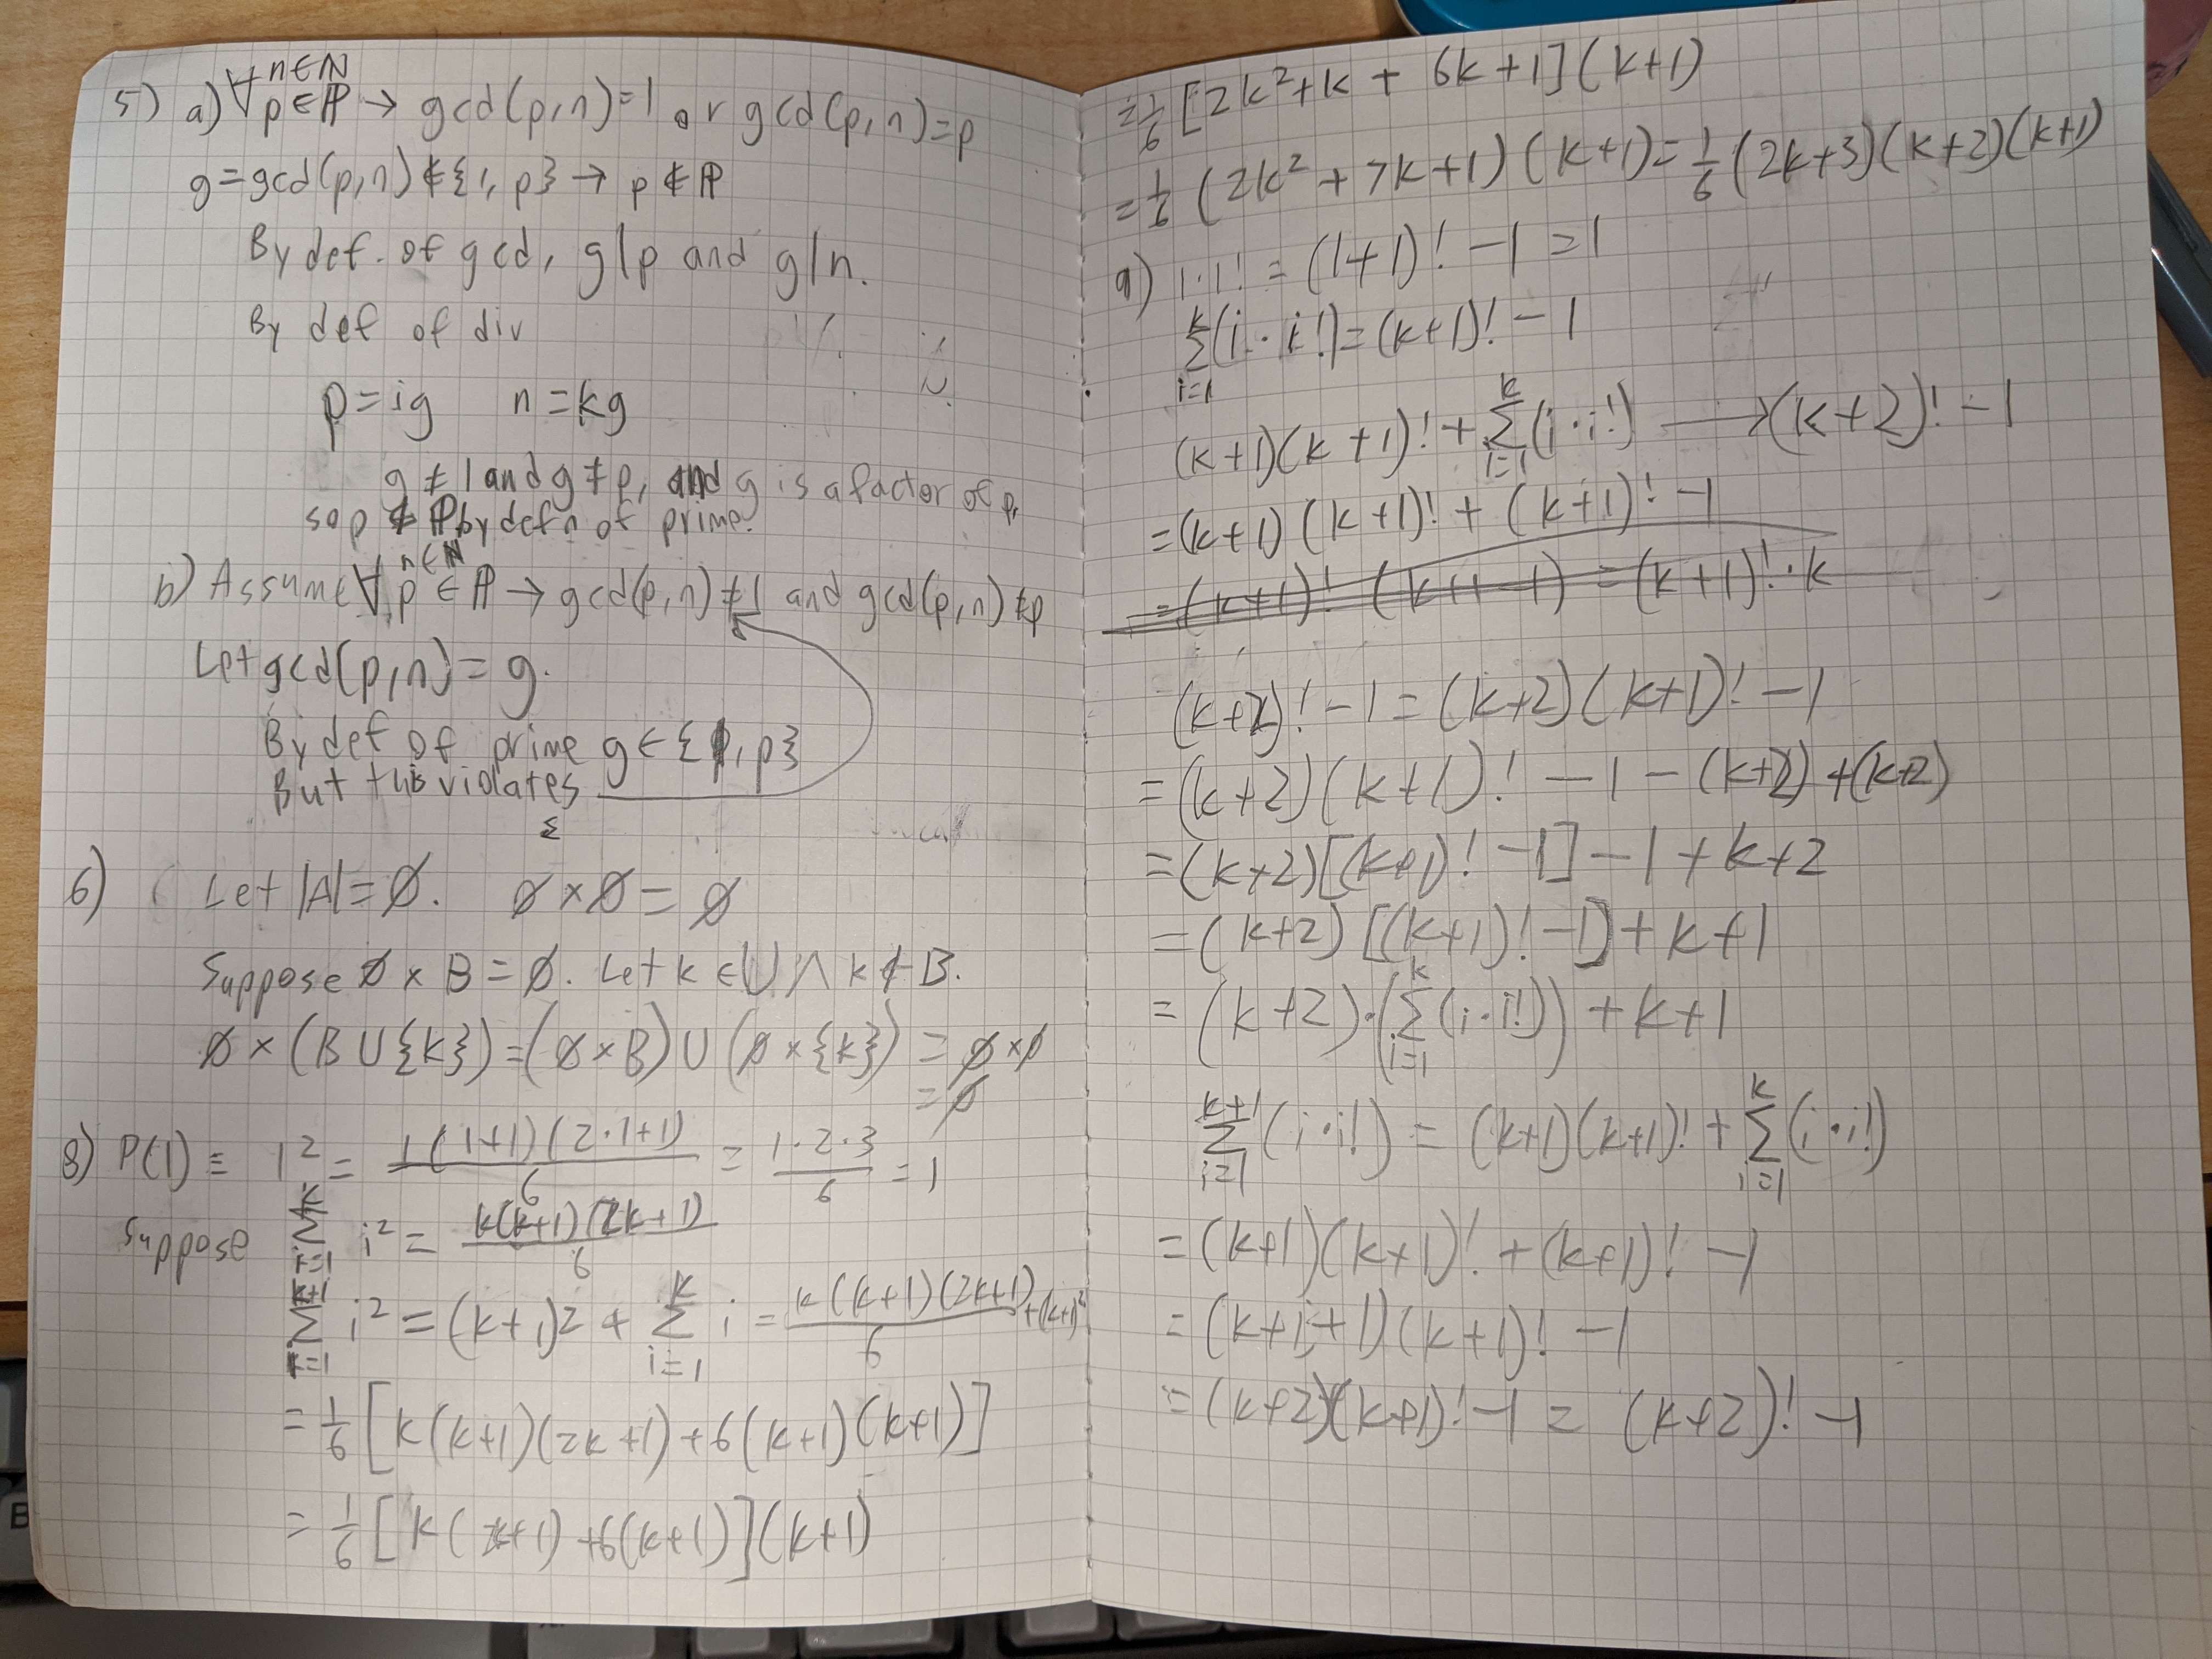 5) a) ∀ n∈ℕ p∈ℙ → gcd(p,n)=1 or gcd(p,n)=p
g=gcd(p,n)∉{1,p} → p∉ℙ
By def. of gcd, g|p and g|n.
By def of div
p=ig n=kg
g≠1 and g≠p, and g is a factor of p,
so p ∉ ℙ by defn of prime.
b) Assume ∀ n∈ℕ p∈ℙ → gcd(p,n)≠1 and gcd(p,n)≠p
Let gcd(p,n)=g.
By def of prime g∈{1,p}
But this violates
6) Let |A|=∅. ∅×∅=∅
Suppose ∅×B=∅. Let k∈U∧k∉B.
∅×(B∪{k})=(∅×B)∪(∅×{k})=∅×∅
=∅
8) P(1)≡ 1²= 1(1+1)(2·1+1)/6 = 1·2·3/6 =1
Suppose Σ_{i=1}^{k} i²= k(k+1)(2k+1)/6
Σ_{i=1}^{k+1} i²=(k+1)2+Σ_{i=1}^{k} i= k(k+1)(2k+1)/6 +(k+1)²
=1/6[k(k+1)(2k+1)+6(k+1)(k+1)]
=1/6[k(2k+1)+6(k+1)](k+1)
=1/6[2k²+k+6k+1](k+1)
=1/6(2k²+7k+1)(k+1)=1/6(2k+3)(k+2)(k+1)
9) 1·1!=(1+1)!-1=1
Σ_{i=1}^{k}(i·i!)=(k+1)!-1
(k+1)(k+1)!+Σ_{i=1}^{k}(i·i!) → (k+2)!-1
=(k+1)(k+1)!+(k+1)!-1
=(k+1)!(k+1-1)=(k+1)!·k
(k+2)!-1=(k+2)(k+1)!-1
=(k+2)(k+1)!-1-(k+2)+(k+2)
=(k+2)[(k+1)!-1]-1+k+2
=(k+2)[(k+1)!-1]+k+1
=(k+2)·(Σ_{i=1}^{k}(i·i!))+k+1
Σ_{i=1}^{k+1}(i·i!)=(k+1)(k+1)!+Σ_{i=1}^{k}(i·i!)
=(k+1)(k+1)!+(k+1)!-1
=(k+1+1)(k+1)!-1
=(k+2)(k+1)!-1=(k+2)!-1
B